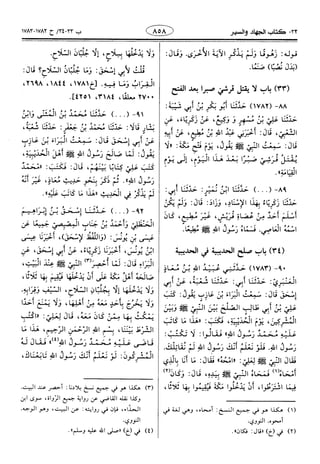 ٣٢- كتاب الجهاد والسير
٨٥٨
ب ٣٣-٣٤/ ح ١٧٨٢-١٧٨٣
قوله: زَهُوقًا وَلَمْ يَذْكُرِ الْآيَةَ الْأُخْرَى. وَقَالَ:
(بَدَلَ نُصُبًا) صَنَمًا.
(٣٣) باب لا يقتل قرشي صبرا بعد الفتح
٨٨- (١٧٨٢) حَدَّثَنَا أَبُو بَكْرِ بْنُ أَبِي شَيْبَةَ:
حَدَّثَنَا عَلِيُّ بْنُ مُسْهِرٍ وَ وَكِيعٌ، عَنْ زَكَرِيَّاءَ، عَنِ
الشَّعْبِيِّ، قَالَ: أَخْبَرَنِي عَبْدُ اللهِ بْنُ مُطِيعٍ، عَنْ أَبِيهِ
قَالَ: سَمِعْتُ النَّبِيَّ ﷺ يَقُولُ، يَوْمَ فَتْحِ مَكَّةَ: «لَا
يُقْتَلُ قُرَشِيٌّ صَبْرًا بَعْدَ هَذَا الْيَوْمِ، إِلَى يَوْمِ
الْقِيَامَةِ».
٨٩- (...) حَدَّثَنَا ابْنُ نُمَيْرٍ: حَدَّثَنَا أَبِي:
حَدَّثَنَا زَكَرِيَّاءُ بِهَذَا الْإِسْنَادِ، وَزَادَ: قَالَ: وَلَمْ يَكُنْ
أَسْلَمَ أَحَدٌ مِنْ عُصَاةِ قُرَيْشٍ، غَيْرَ مُطِيعٍ، كَانَ
اسْمُهُ الْعَاصِي، فَسَمَّاهُ رَسُولُ اللهِ ﷺ مُطِيعًا.
(٣٤) باب صلح الحديبية في الحديبية
٩٠- (١٧٨٣) حَدَّثَنِي عُبَيْدُ اللهِ بْنُ مُعَاذٍ
الْعَنْبَرِيُّ: حَدَّثَنَا أَبِي: حَدَّثَنَا شُعْبَةُ عَنْ أَبِي
إِسْحَقَ قَالَ: سَمِعْتُ الْبَرَاءَ بْنَ عَازِبٍ يَقُولُ: كَتَبَ
عَلِيُّ بْنُ أَبِي طَالِبٍ الصُّلْحَ بَيْنَ النَّبِيِّ ﷺ وَبَيْنَ
الْمُشْرِكِينَ، يَوْمَ الْحُدَيْبِيَةِ، فَكَتَبَ: «هَذَا مَا كَاتَبَ
عَلَيْهِ مُحَمَّدٌ رَسُولُ اللهِ» فَقَالُوا: لَا تَكْتُبْ:
رَسُولُ اللهِ. فَلَوْ نَعْلَمُ أَنَّكَ رَسُولُ اللهِ لَمْ نُقَاتِلْكَ.
فَقَالَ النَّبِيُّ ﷺ لِعَلِيٍّ: «امْحُهُ» فَقَالَ: مَا أَنَا بِالَّذِي
أَمْحَاهُ(١) فَمَحَاهُ النَّبِيُّ ﷺ بِيَدِهِ. قَالَ: وَكَانَ(٢)
فِيمَا اشْتَرَطُوا، أَنْ يَدْخُلُوا مَكَّةَ فَيُقِيمُوا بِهَا ثَلَاثًا،
وَلَا يَدْخُلَهَا بِسِلَاحٍ، إِلَّا جُلُبَّانَ السِّلَاحِ.
قُلْتُ لِأَبِي إِسْحَقَ: وَمَا جُلُبَّانُ السِّلَاحِ؟ قَالَ:
الْقِرَابُ وَمَا فِيهِ. [خ ١٧٨١، ١٨٤٤، ٢٦٩٨،
٢٧٠٠ معلقا، ٣١٨٤، ٤٢٥١].
٩١- (...) حَدَّثَنَا مُحَمَّدُ بْنُ الْمُثَنَّى وَابْنُ
بَشَّارٍ قَالَا: حَدَّثَنَا مُحَمَّدُ بْنُ جَعْفَرٍ: حَدَّثَنَا شُعْبَةُ،
عَنْ أَبِي إِسْحَقَ قَالَ: سَمِعْتُ الْبَرَاءَ بْنَ عَازِبٍ
يَقُولُ: لَمَّا صَالَحَ رَسُولُ اللهِ ﷺ أَهْلَ الْحُدَيْبِيَةِ،
كَتَبَ عَلِيٌّ كِتَابًا بَيْنَهُمْ. قَالَ: فَكَتَبَ: «مُحَمَّدٌ
رَسُولُ اللهِ» ثُمَّ ذَكَرَ بِنَحْوِ حَدِيثِ مُعَاذٍ، غَيْرَ أَنَّهُ
لَمْ يَذْكُرْ فِي الْحَدِيثِ «هَذَا مَا كَاتَبَ عَلَيْهِ».
٩٢- (...) حَدَّثَنَا إِسْحَقُ بْنُ إِبْرَاهِيمَ
الْحَنْظَلِيُّ وَأَحْمَدُ بْنُ جَنَابٍ الْمِصِّيصِيُّ جَمِيعًا عَنْ
عِيسَى بْنِ يُونُسَ، (وَاللَّفْظُ لِإِسْحَقَ)، أَخْبَرَنَا عِيسَى
ابْنُ يُونُسَ، أَخْبَرَنَا زَكَرِيَّاءُ، عَنْ أَبِي إِسْحَقَ، عَنِ
الْبَرَاءِ قَالَ: لَمَّا أُحْصِرَ(٣) النَّبِيُّ ﷺ عِنْدَ الْبَيْتِ،
صَالَحَهُ أَهْلُ مَكَّةَ عَلَى أَنْ يَدْخُلَهَا فَيُقِيمَ بِهَا ثَلَاثًا،
وَلَا يَدْخُلَهَا إِلَّا بِجُلُبَّانِ السِّلَاحِ، السَّيْفِ وَقِرَابِهِ.
وَلَا يَخْرُجَ بِأَحَدٍ مَعَهُ مِنْ أَهْلِهَا، وَلَا يَمْنَعَ أَحَدًا
يَمْكُثُ بِهَا مِمَّنْ كَانَ مَعَهُ. قَالَ لِعَلِيٍّ: «اكْتُبِ
الشَّرْطَ بَيْنَنَا، بِسْمِ اللهِ الرَّحْمَنِ الرَّحِيمِ، هَذَا مَا
قَاضَى عَلَيْهِ مُحَمَّدٌ رَسُولُ اللهِ(٤)» فَقَالَ لَهُ
الْمُشْرِكُونَ: لَوْ نَعْلَمُ أَنَّكَ رَسُولُ اللهِ تَابَعْنَاكَ،
(١) هكذا هو في جميع النسخ: أمحاه، وهي لغة في
أمحوه. النووي.
(٢) في (خ) «قال: فكان».
(٣) هكذا هو في جميع نسخ بلادنا: أحصر عند البيت.
وكذا نقله القاضي عن رواية جميع الرواة، سوى ابن
الحذاء، فإن في روايته: عن البيت، وهو الوجه.
النووي.
(٤) في (ع) «صلى الله عليه وسلم».